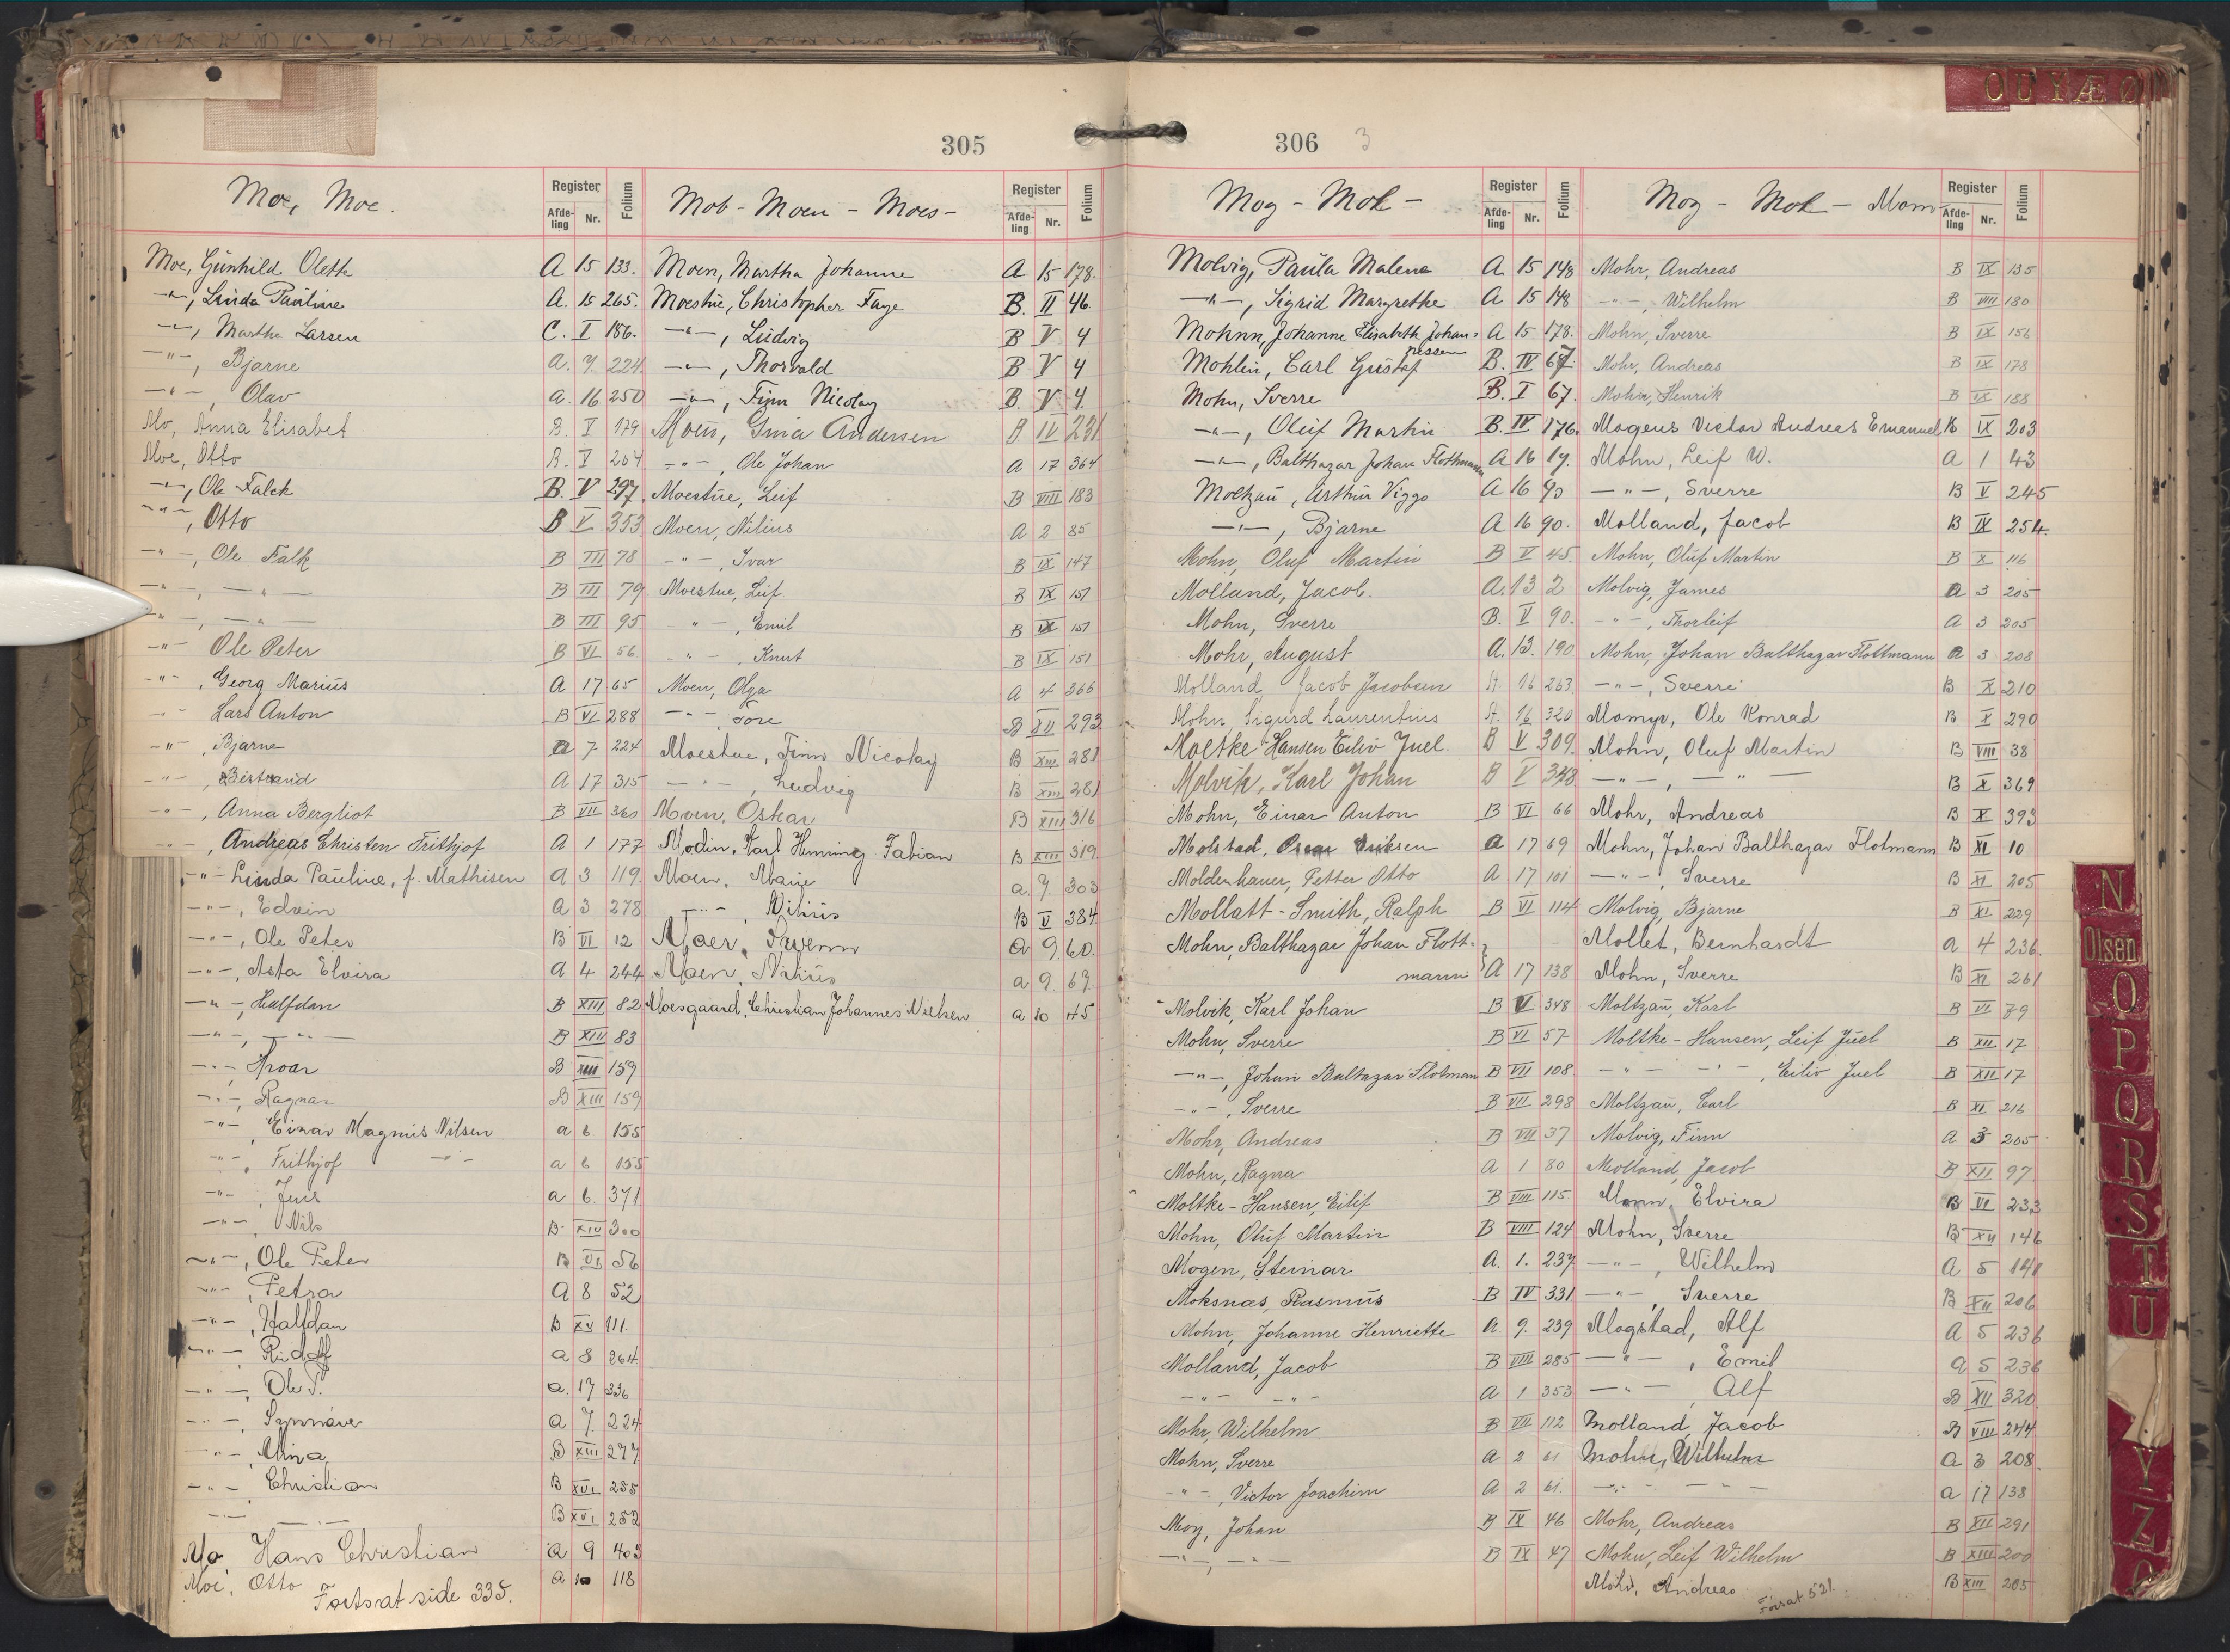 305
Moe, Moe.
Register
Afde-ling
Nr.
Folium
Moe, Gunhild Olette A 15 133.
-"-, Linda Pauline A. 15 265.
-"-, Marthe Larsen C. I 186.
-"-, Bjarne A. 7. 224.
-"-, Olav A. 16 250
Mo, Anna Elisabet B. V 179
Moe, Otto B. V 264
-"-, Ole Falck B. V 297
-"-, Otto B V 353
-"-, Ole Falk B III 78
-"-, -"- B III 79
-"-, -"- B III 95
-"- Ole Peter B VI 56
-"-, Georg Marius A 17 65
-"- Lars Anton B VI 288
-"-, Bjarne A 7 224
-"-, A 17 315
-"-, Anna Bergliot B VII 360
-"-, Andreas Christen Frithjof A 1 177
-"- Linda Pauline, f. Mathisen A 3 119
-"-, Edvin A 3 278
-"-, Ole Peter B VI 12
-"-, Asta Elvira A 4 244
-"-, Halfdan B XIII 82
-"-, -"- B XIII 83
-"-, Hroar B XIII 159
-"-, Ragnar B XIII 159
-"-, Einar Magnus Nilsen a 6 155
-"-, Frithjof -"- a 6 155
-"-, Jens a 6. 371
-"-, Nils B XIV 300
-"-, Ole Peter B VI 56
-"-, Petra A 8 52
-"-, Halfdan B XV 111.
-"-, Rudolf a 8 264
-"-, Ole P. a. 17 336
-"-, Synnøve a 7. 224
-"-, Alina B XIII 277
-"-, Christian B XVI 255
-"- -"- B XVI 252
Mo, Hans Christian a 9 403
Moe, Otto a 10 118
Fortsat side 335.
Mob - Moen - Moes -
Register
Afde-ling
Nr.
Folium
Moen, Martha Johanne A 15 178.
Moestue, Christopher Faye B. II 46.
-"-, Ludvig B V 4
-"-, Thorvald B V 4
-"-, Finn Nicolay B. V 4.
Moen, Gina Andersen B IV 231
-"-, Ole Johan A 17 364
Moestue, Leif B VIII 183
Moen, Nilius A 2 85
-"-, Ivar B IX 147
Moestue, Leif B IX 151
-"-, Emil B IX 151
-"-, Knut B IX 151
Moen, Olga A 4 366
-"- Tore B XII 293
Moestue, Finn Nicolay B XIII 281
-"-, Ludvig B XIII 281
Moen, Oskar B XIII 316
Modin, Karl Henning Fabian B XIII 319
Moen, Marie a 7. 303
-"-, Nilius B V 384
Moer, Svenn a 9 60.
Moen, Nilius a 9. 67.
Moesgaard, Christian Johannes Nielsen a 10 45
306 3
Mog - Moh -
Register
Afde-ling
Nr.
Folium
Molvig, Paula Malene A 15 148
-"-, Sigrid Margrethe A 15 148
Mohnn, Johanne Elisabeth Johan- A 15 178.
nessen
Mohlin, Carl Gustaf B. IV 67.
Mohn, Sverre B. I 67.
-"-, Oluf Martin B. IV 176.
-"-, Balthazar Johan Flothmann A 16 19.
Moltzau, Arthur Viggo A 16 90
-"-, Bjarne A 16 90.
Mohn, Oluf Martin B V 45.
Molland, Jacob. A. 13 2
Mohn, Sverre B. V 90.
Mohr, August A. 13. 190
Molland, Jacob Jacobsen A. 16 263
Mohn, Sigurd Laurentius A. 16 320
Moltke-Hansen Eiliv Juel. B V 309.
Molvik, Karl Johan B V 348
Mohn, Einar Anton B VI 66
Molstad, Oscar Eriksen A 17 69
Moldenhauer, Petter Otto A. 17 101
Mollatt-Smith, Ralph B VI 114
Mohn, Balthazar Johan Flott-
mann A 17 138
Molvik, Karl Johan B V 348
Mohn, Sverre B VI 57
-"-, Johan Baltazar Flotman B VII 108
-"-, Sverre B VII 298
Mohr, Andreas B VII 37
Mohn, Ragna A 1 80
Moltke-Hansen, Eilif B VIII 115
Mohn, Oluf Martin B VIII 124
Mogen, Steinar A. 1. 237
Moksnas, Rasmus B IV 331
Mohn, Johanne Henriette A. 9. 239
Molland, Jacob B VIII 285
-"- -"- A 1 353
Mohr, Wilhelm B VII 112
Mohn, Sverre A 2 61
-"-, Victor Joachim A 2 61.
Moy, Johan B IX 46
-"-, -"- B IX 47
Mog - Moh - Mom
Register
Afde-ling
Nr.
Folium
Mohr, Andreas B IX 135
-"-, Wilhelm B VIII 180
Mohn, Sverre B IX 156
Mohr, Andreas B IX 178
Mohn, Henrik B IX 188
Mogens Victor Andreas Emanuel B IX 203
Mohn, Leif W. A 1 43
-"-, Sverre B V 245
Molland, Jacob B IX 254.
Mohn, Oluf Martin B X 116
Molvig, James A 3 205
-"-, Thorleif A 3 205
Mohn, Johan Balthazar Flottmann A 3 208
-"-, Sverre B X 210
Momyr, Ole Konrad B X 290
Mohn, Oluf Martin B VIII 38
-"-, -"- B X 369
Mohr, Andreas B X 393
Mohn, Johan Balthazar Flotmann B XI 10
-"-, Sverre B XI 205
Molvig, Bjarne B XI 229
Mollet, Bernhardt A 4 236.
Mohn, Sverre B XI 261
Moltzau, Karl B VI 79
Moltke-Hansen, Leif Juel B XII 17
-"- -"-, Eiliv Juel B XII 17
Moltzau, Carl B XI 216
Molvig, Finn A 3 205
Molland, Jacob B XII 97
Monn, Elvira B VI 233
Mohn, Sverre B XII 146
-"-, Wilhelm A 5 141
-"-, Sverre B XII 206
Mogstad, Alf A 5 236
-"-, Emil a 5 236
-"- Alf B XII 320
Molland, Jacob B VIII 244
Mohn, Wilhelm a 3 208.
-"- -"- a 17 138
Mohr, Andreas B XII 291
Mohn, Leif Wilhelm B XIII 200
Mohr, Andreas B XIII 205
Forsat 521.
O U Y Æ Ø
N
Olsen
O
P
Q
R
S
T
U
Y
Z